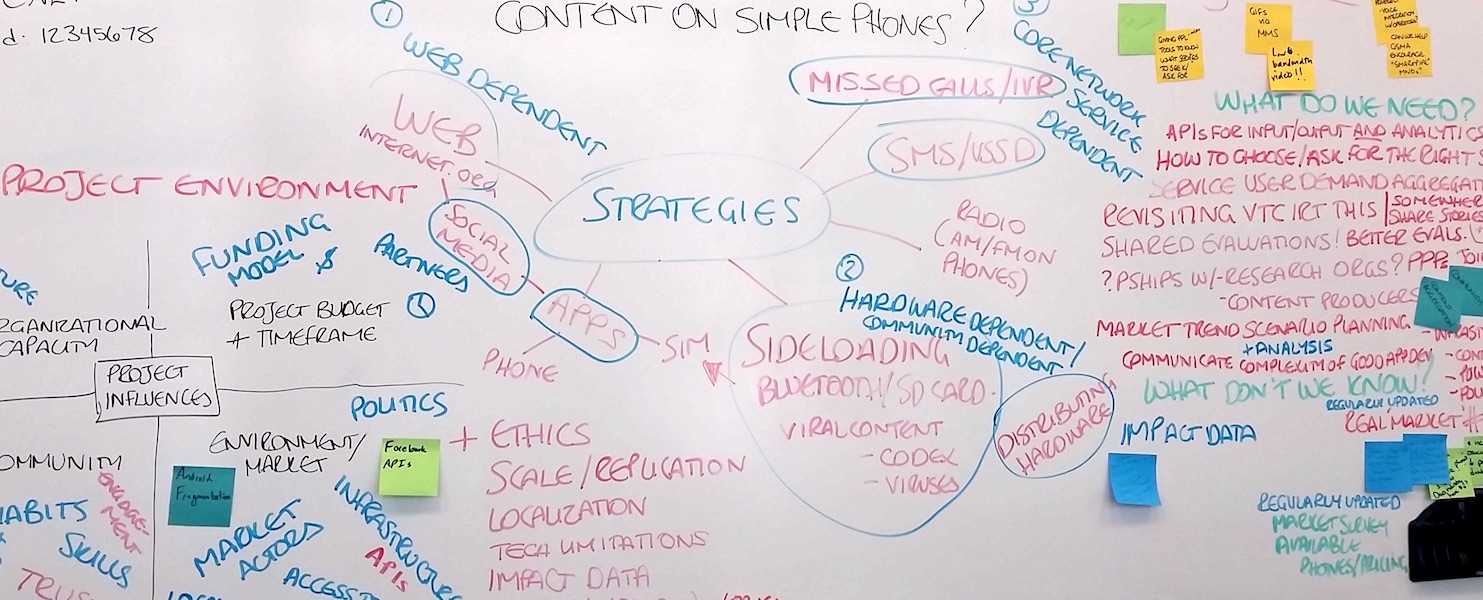 d: 12345678
CONTENT ON SIMPLE PHONES?
①
WEB DEPENDENT
WEB
INTERNET.ORG
SOCIAL
MEDIA
PARTNERS
STRATEGIES
MISSED CALLS/IVR
SMS/USSD
RADIO
(AM/FM ON
PHONES)
3
CORE NETWORK
SERVICE
DEPENDENT
APPS
PHONE
SIM
②
HARDWARE DEPENDENT/
COMMUNITY DEPENDENT
SIDELOADING
BLUETOOTH/SD CARD
VIRAL CONTENT
- CODEX
- VIRUSES
DISTRIBUTING
HARDWARE
PROJECT ENVIRONMENT
FUNDING
MODEL $
PROJECT BUDGET
+ TIMEFRAME
URE
RGANIZATIONAL
CAPACITY
PROJECT
INFLUENCES
POLITICS
ENVIRONMENT/
MARKET
Facebook
APIs
Android
Fragmentation
OMMUNITY
ENGAGE-
MENT
HABITS
SKILLS
TRUS
MARKET
ACTORS
INFRASTRUCTURE
APIs
ACCESS
+ ETHICS
SCALE/REPLICATION
LOCALIZATION
TECH LIMITATIONS
IMPACT DATA
GIVING PPL
TOOLS TO KNOW
WHAT
TO SEEK/
ASK FOR
GIFs
via
MMS
Low
bandwidth
video!!
CAN WE HELP
GSMA
ENCOURAGE
MNOs?
WHAT DO WE NEED?
APIs FOR INPUT/OUTPUT AND ANALYTICS
HOW TO CHOOSE/ASK FOR THE RIGHT S
SERVICE USER DEMAND AGGREGAT
REVISITING VTC IRT THIS
SOMEWHERE
SHARE STORIES
SHARED EVALUATIONS! BETTER EVALS.
? PSHIPS W/-RESEARCH ORGS? PPPs
- CONTENT PRODUCERS
MARKET TREND SCENARIO PLANNING
+ ANALYSIS
COMMUNICATE COMPLEXITY OF GOOD APP DEV
WHAT DON'T WE KNOW?
REGULARLY UPDATED
REAL MARKET
IMPACT DATA
REGULARLY UPDATED
MARKET SURVEY
AVAILABLE
PHONES/PRICING